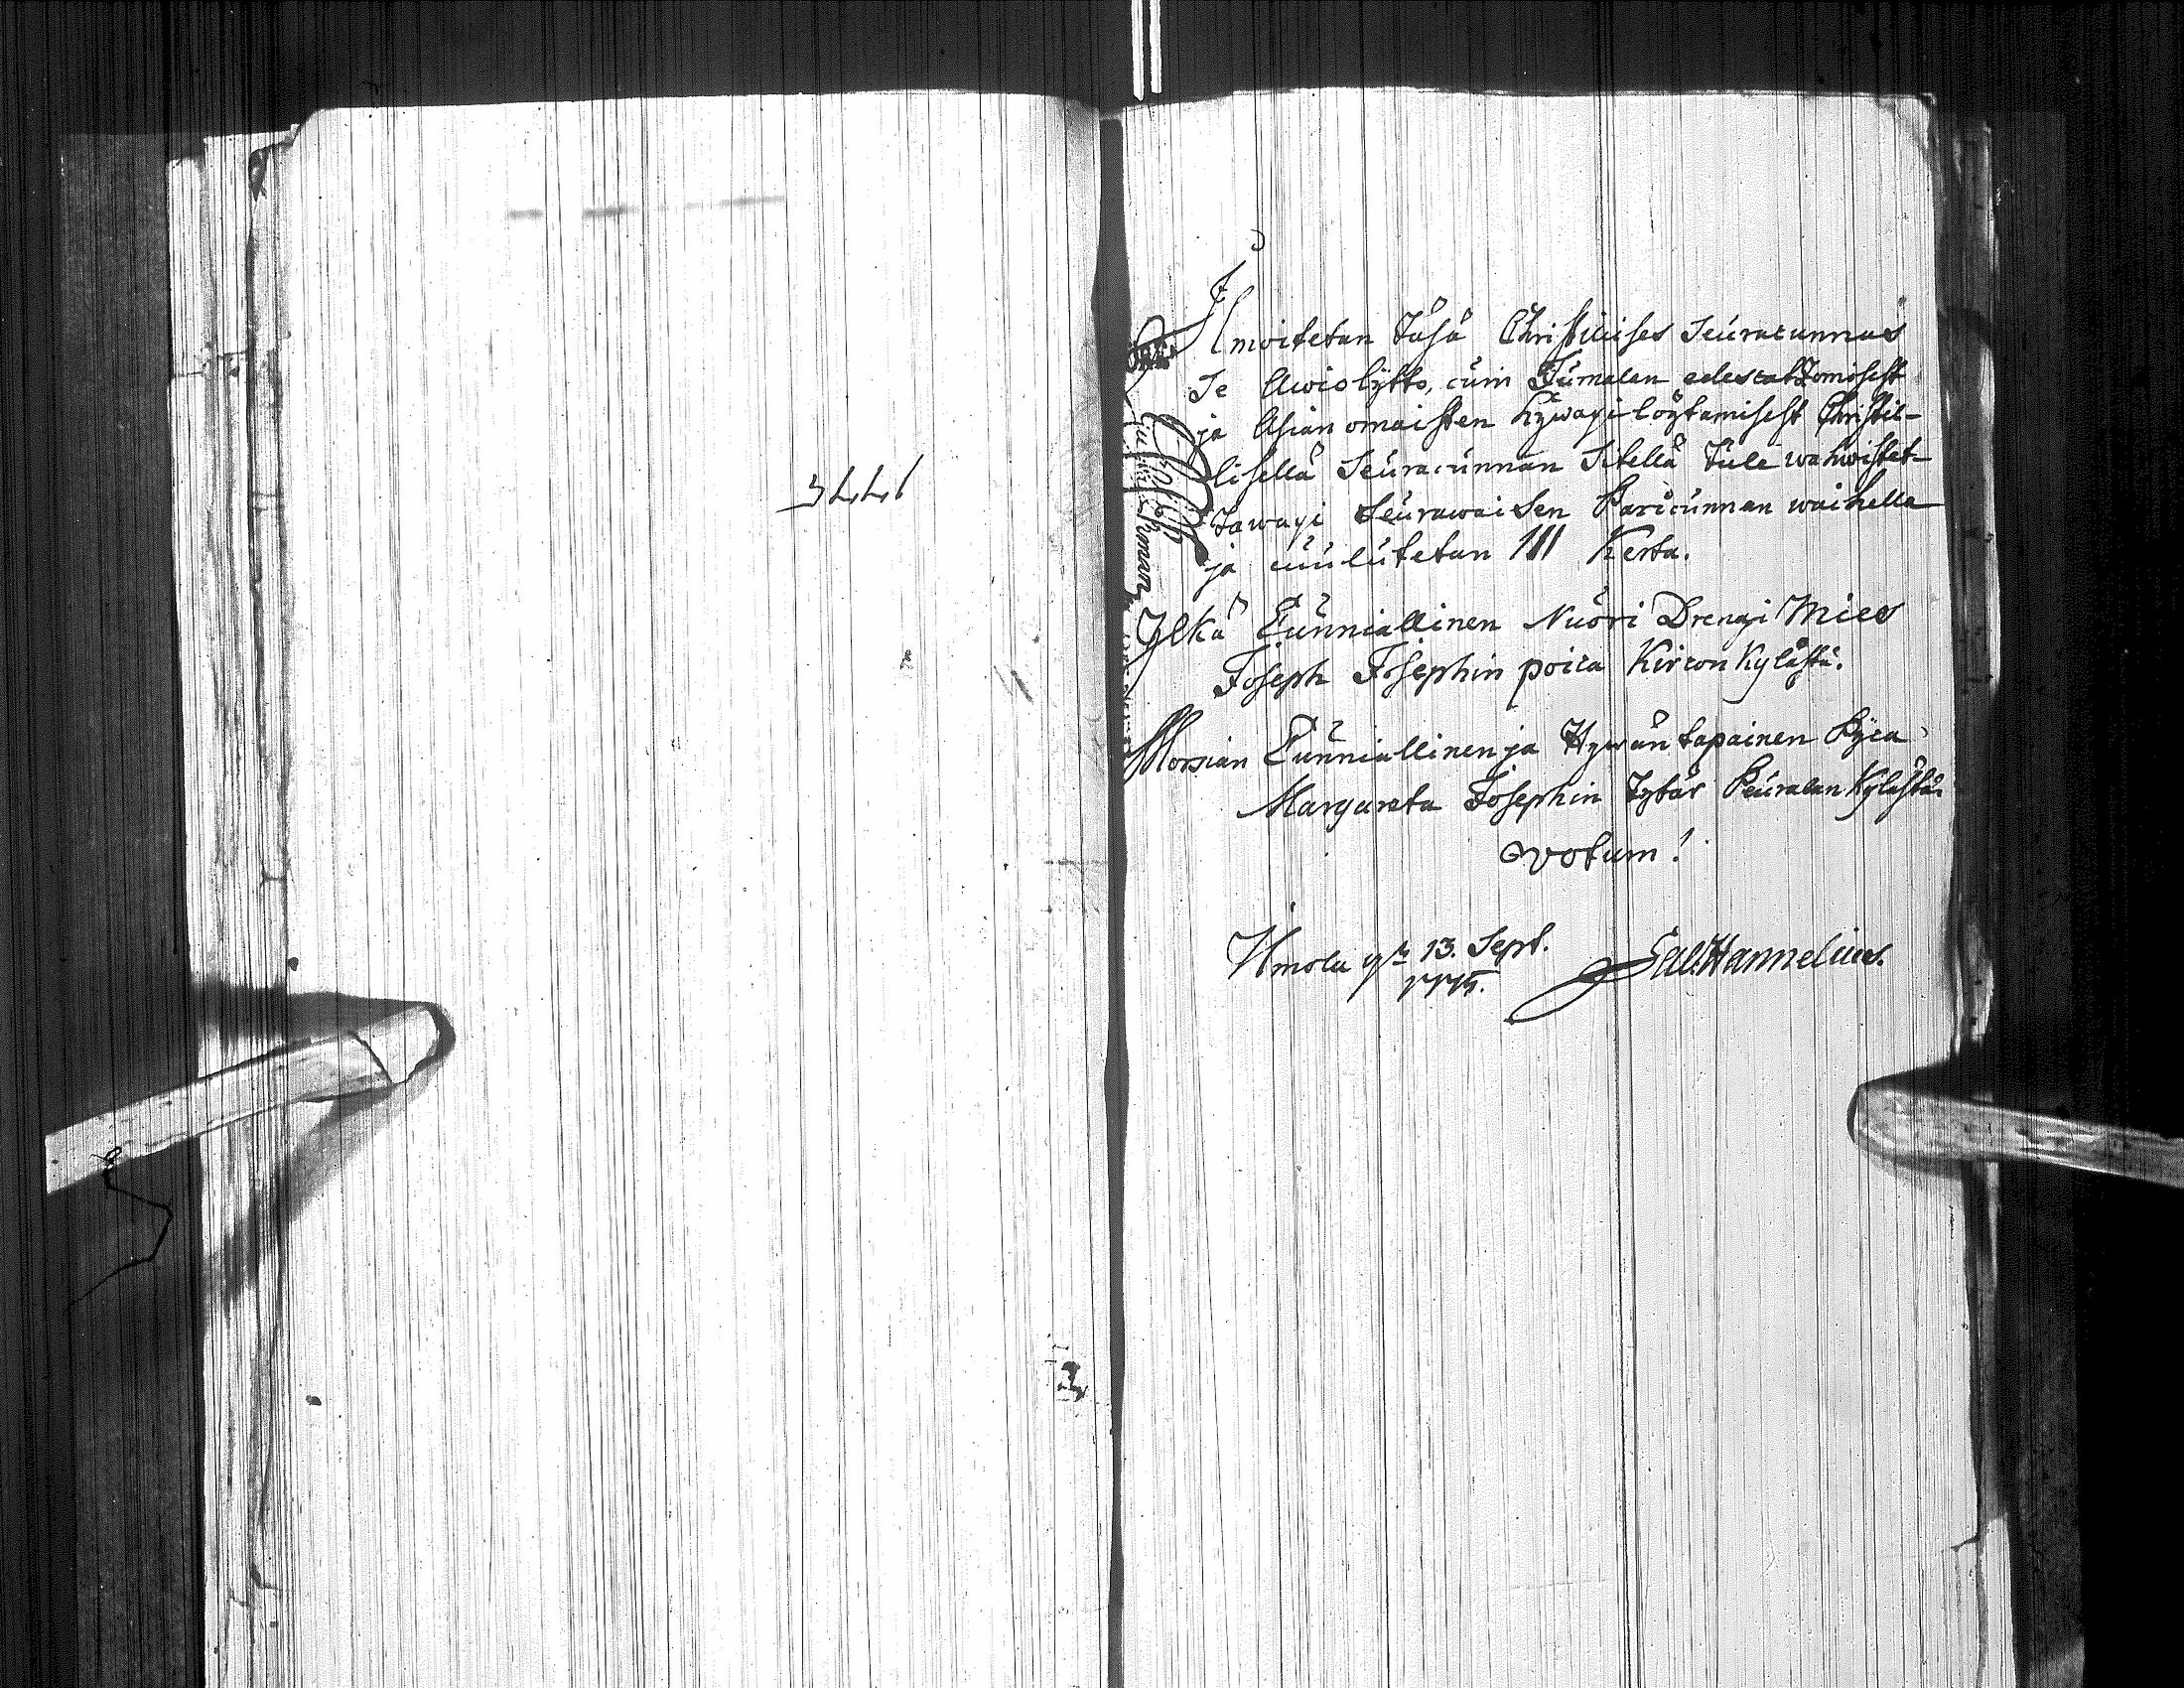 1775
Ilmoitetan täsä Christilises Seuracunnas
Se Awiolijtto, cuin Jumalan edescatzomisest
ja Asianomaisten hywäxi löytämisest Christil-
lisellä Seuracunnan Sitellä tule wahwistet-
tawaxi Seurawaisen Paricunnan waihella
ja cuulutetan III Kerta.
Ylkä Cunniallinen Nuori Drengi Mies
Joseph Josephin poica Kircon Kylästä.
Morsian Cunniallinen ja Hywäntapainen Pijca
Margareta Josephin Tytär Peuralan Kylästä.
Votum!
Umola 13. Sept.
1775.
Sal. Hannelius.